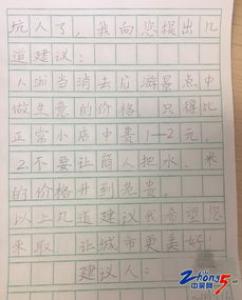 坑人了，我向您提出几
道建议：
1.消去旅游景点中
做生意的价格，只得比
正常小店中贵1—2元。
2.不要让商人把水、米
的价格升到危贵。
以上几道建议我希望您
采取，让城市更美好！
建议人：
Zhong5
中吴网
.com